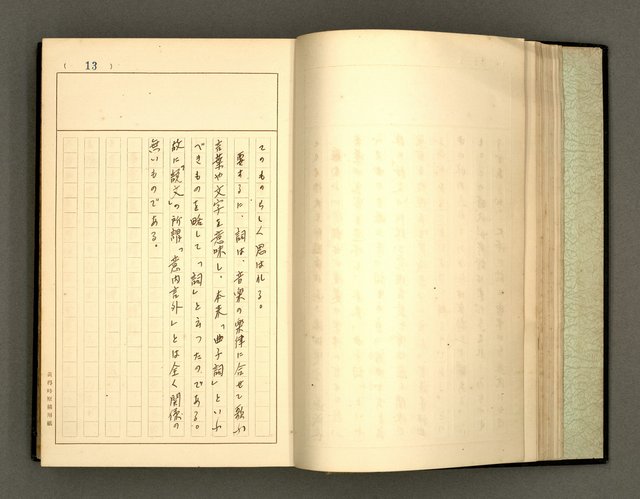 ( 13 )
てのものらしく思はれる。
要するに、詞は、音楽の楽律に合せて歌ふ
言葉や文字を意味し、本来「曲子詞」といふ
べきものを略して「詞」と云つたのである。
故に「説文」の所謂「意内言外」とは全く関係の
無いものである。
黃得時原稿用紙